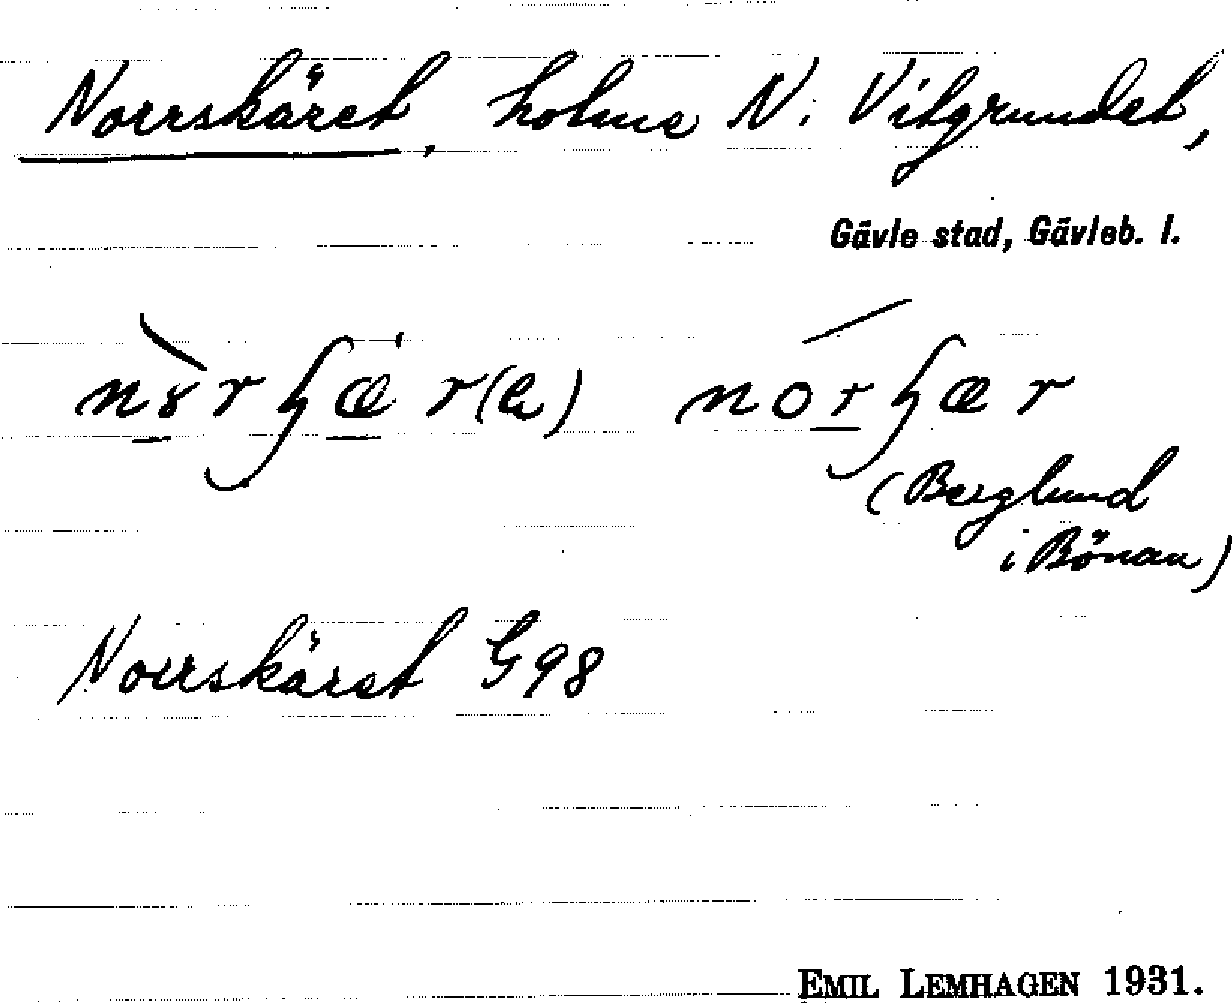 Norrskäret, holme N. Vitgrundet,
Gävle stad, Gävleb. l.
(Berglund
i Bönan)
Norrskäret G98
EMIL LEMHAGEN 1931.